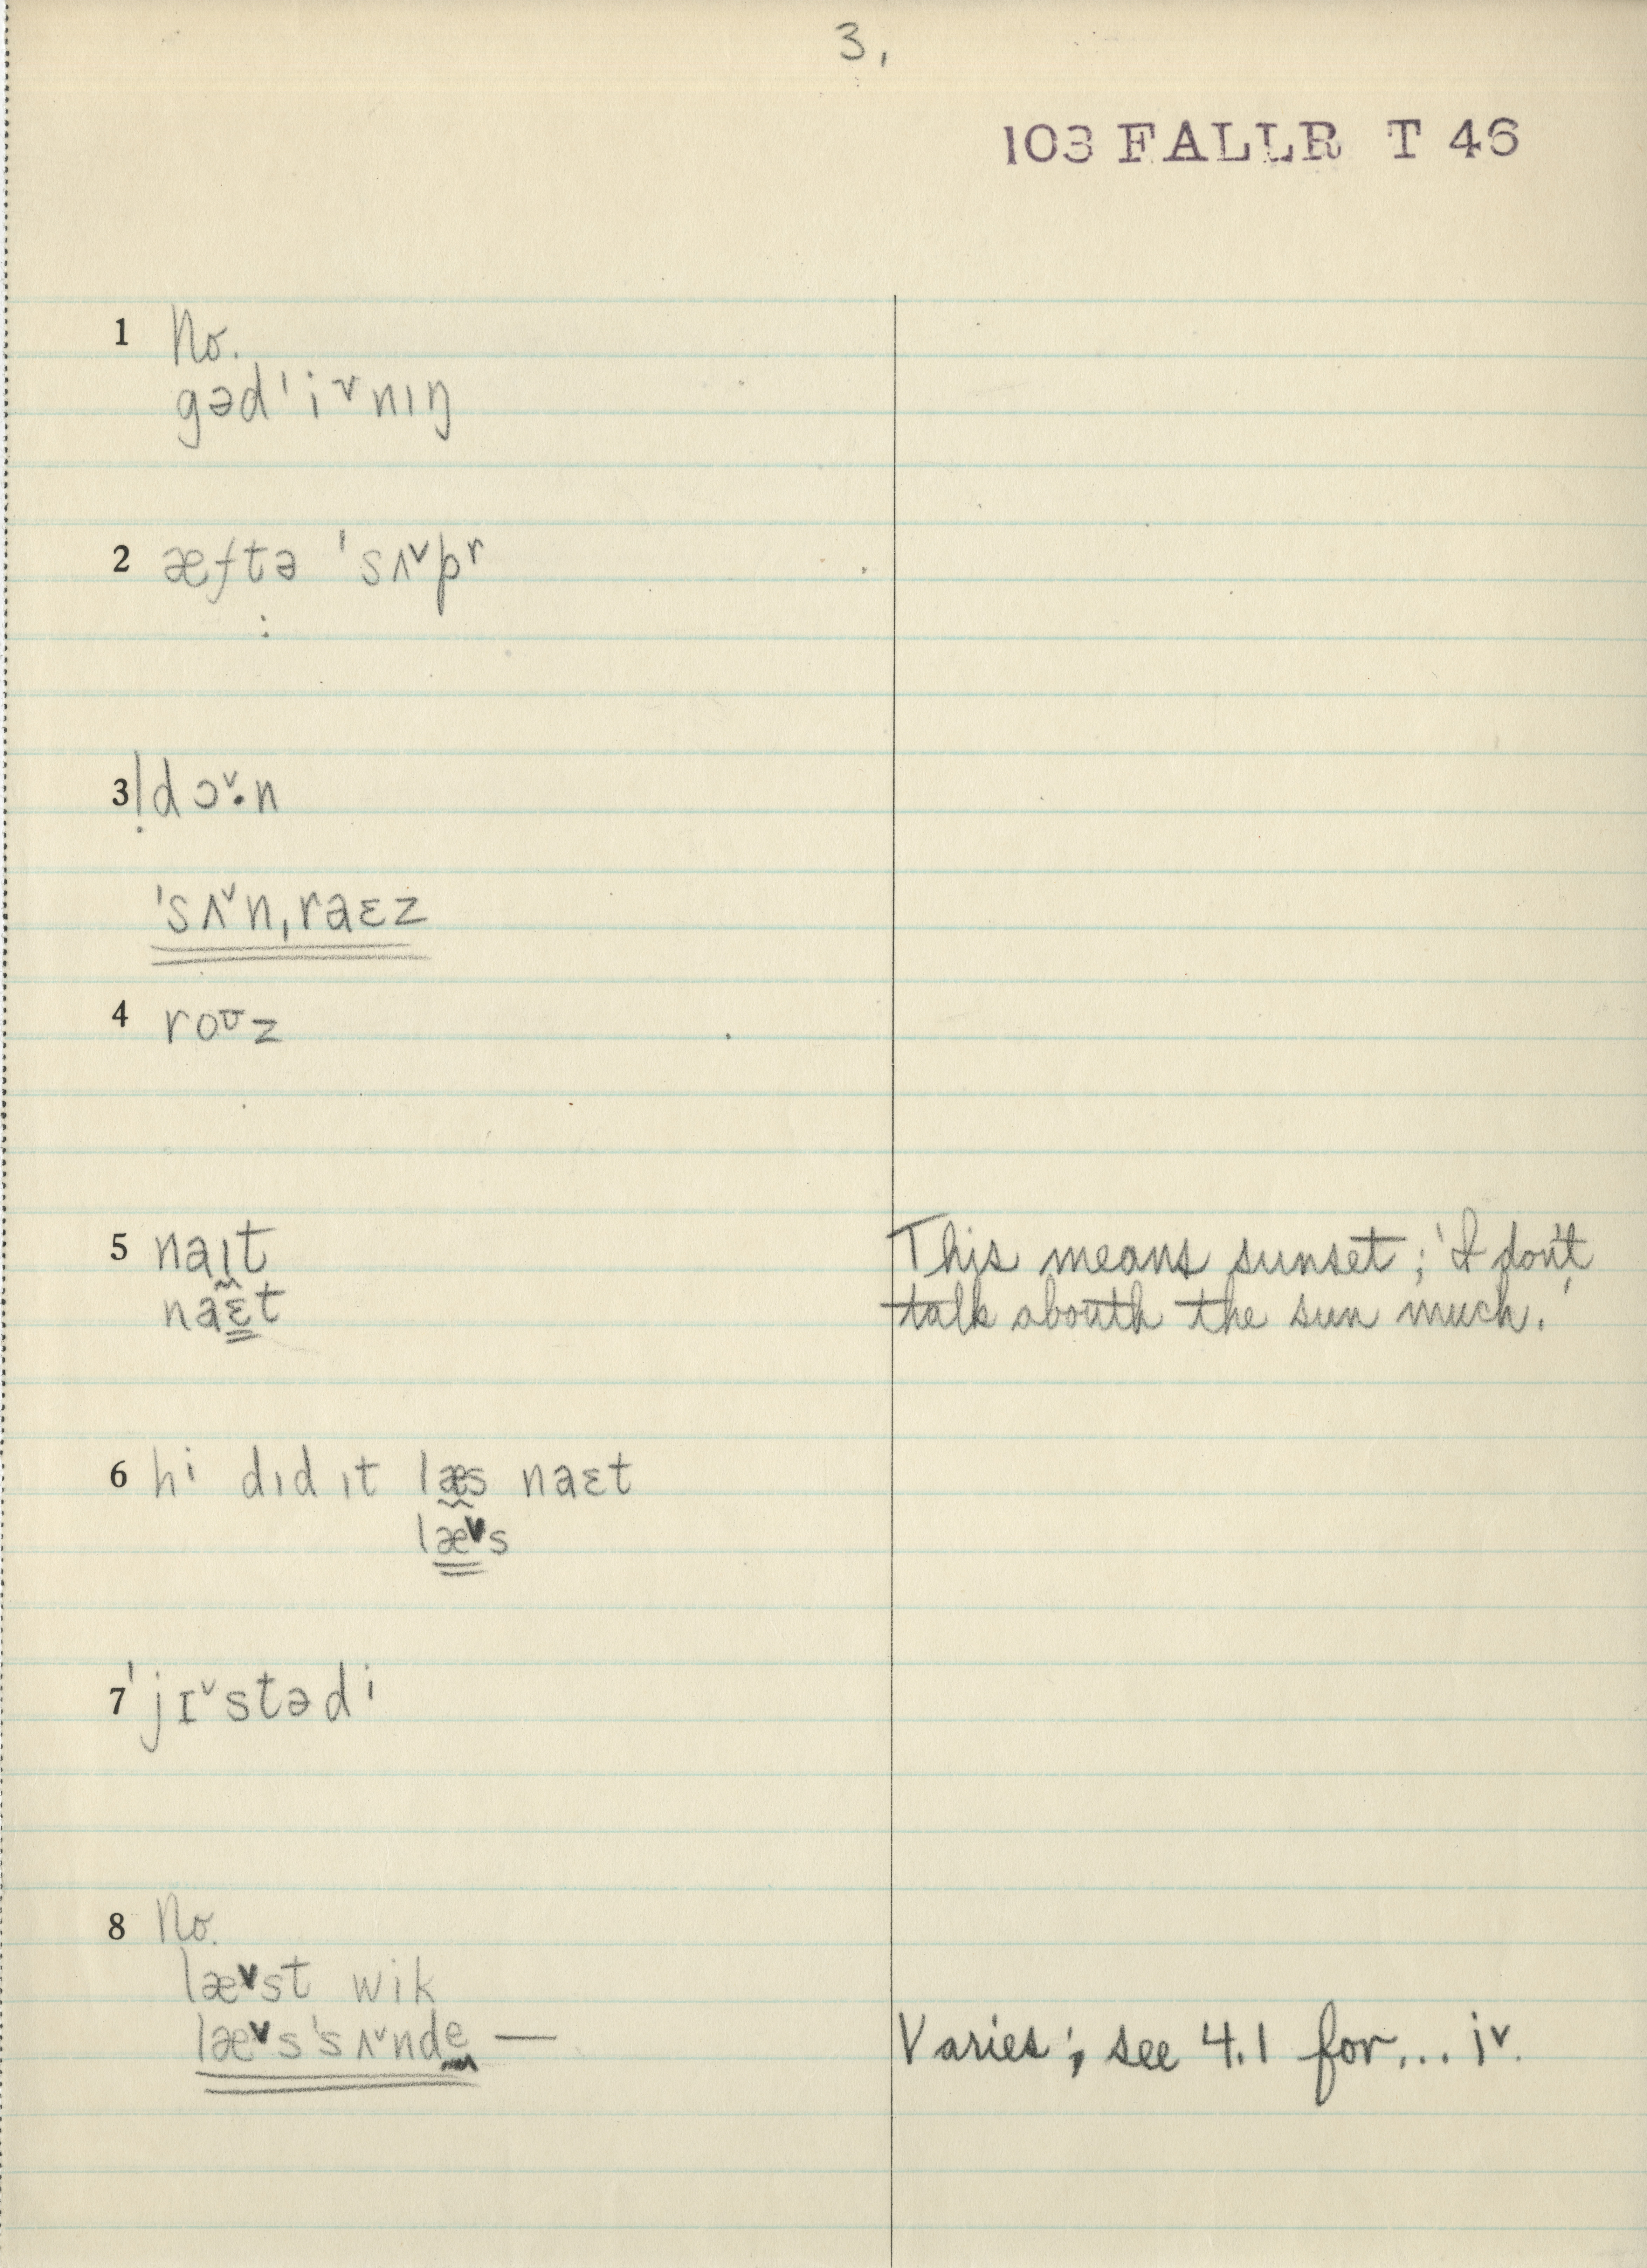 3,
103 FALLR T 46
1 No.
gəd'iˇnıŋ
2 æftə 'sʌˇpʳ
3 dɔˇ·n
'sʌˇnˌraɛz
4 roʊz
5 naıt This means sunset; 'I don't
naɛt talk abouth the sun much.'
6 hⁱ dıd ıt læs naɛt
læˇs
7 'jɪˇstədⁱ
8 No.
læˇst wik
læˇs'sʌˇnde — Varies; see 4.1 for... iˇ.